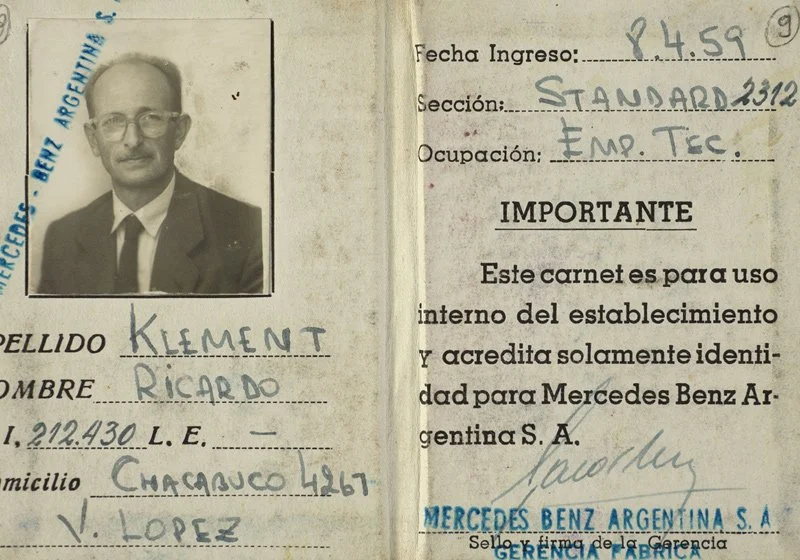 MERCEDES - BENZ ARGENTINA S.
PELLIDO KLEMENT
OMBRE RICARDO
I, 212.430 L. E. —
micilio CHACABUCO 4267
V. LOPEZ
9
Fecha Ingreso: 8.4.59
Sección: STANDARD 2312
Ocupación: EMP. TEC.
IMPORTANTE
Este carnet es para uso
interno del establecimiento
y acredita solamente identi-
dad para Mercedes Benz Ar-
gentina S. A.
MERCEDES BENZ ARGENTINA S. A
Sello y firma de la Gerencia
GERENCIA FABRICA